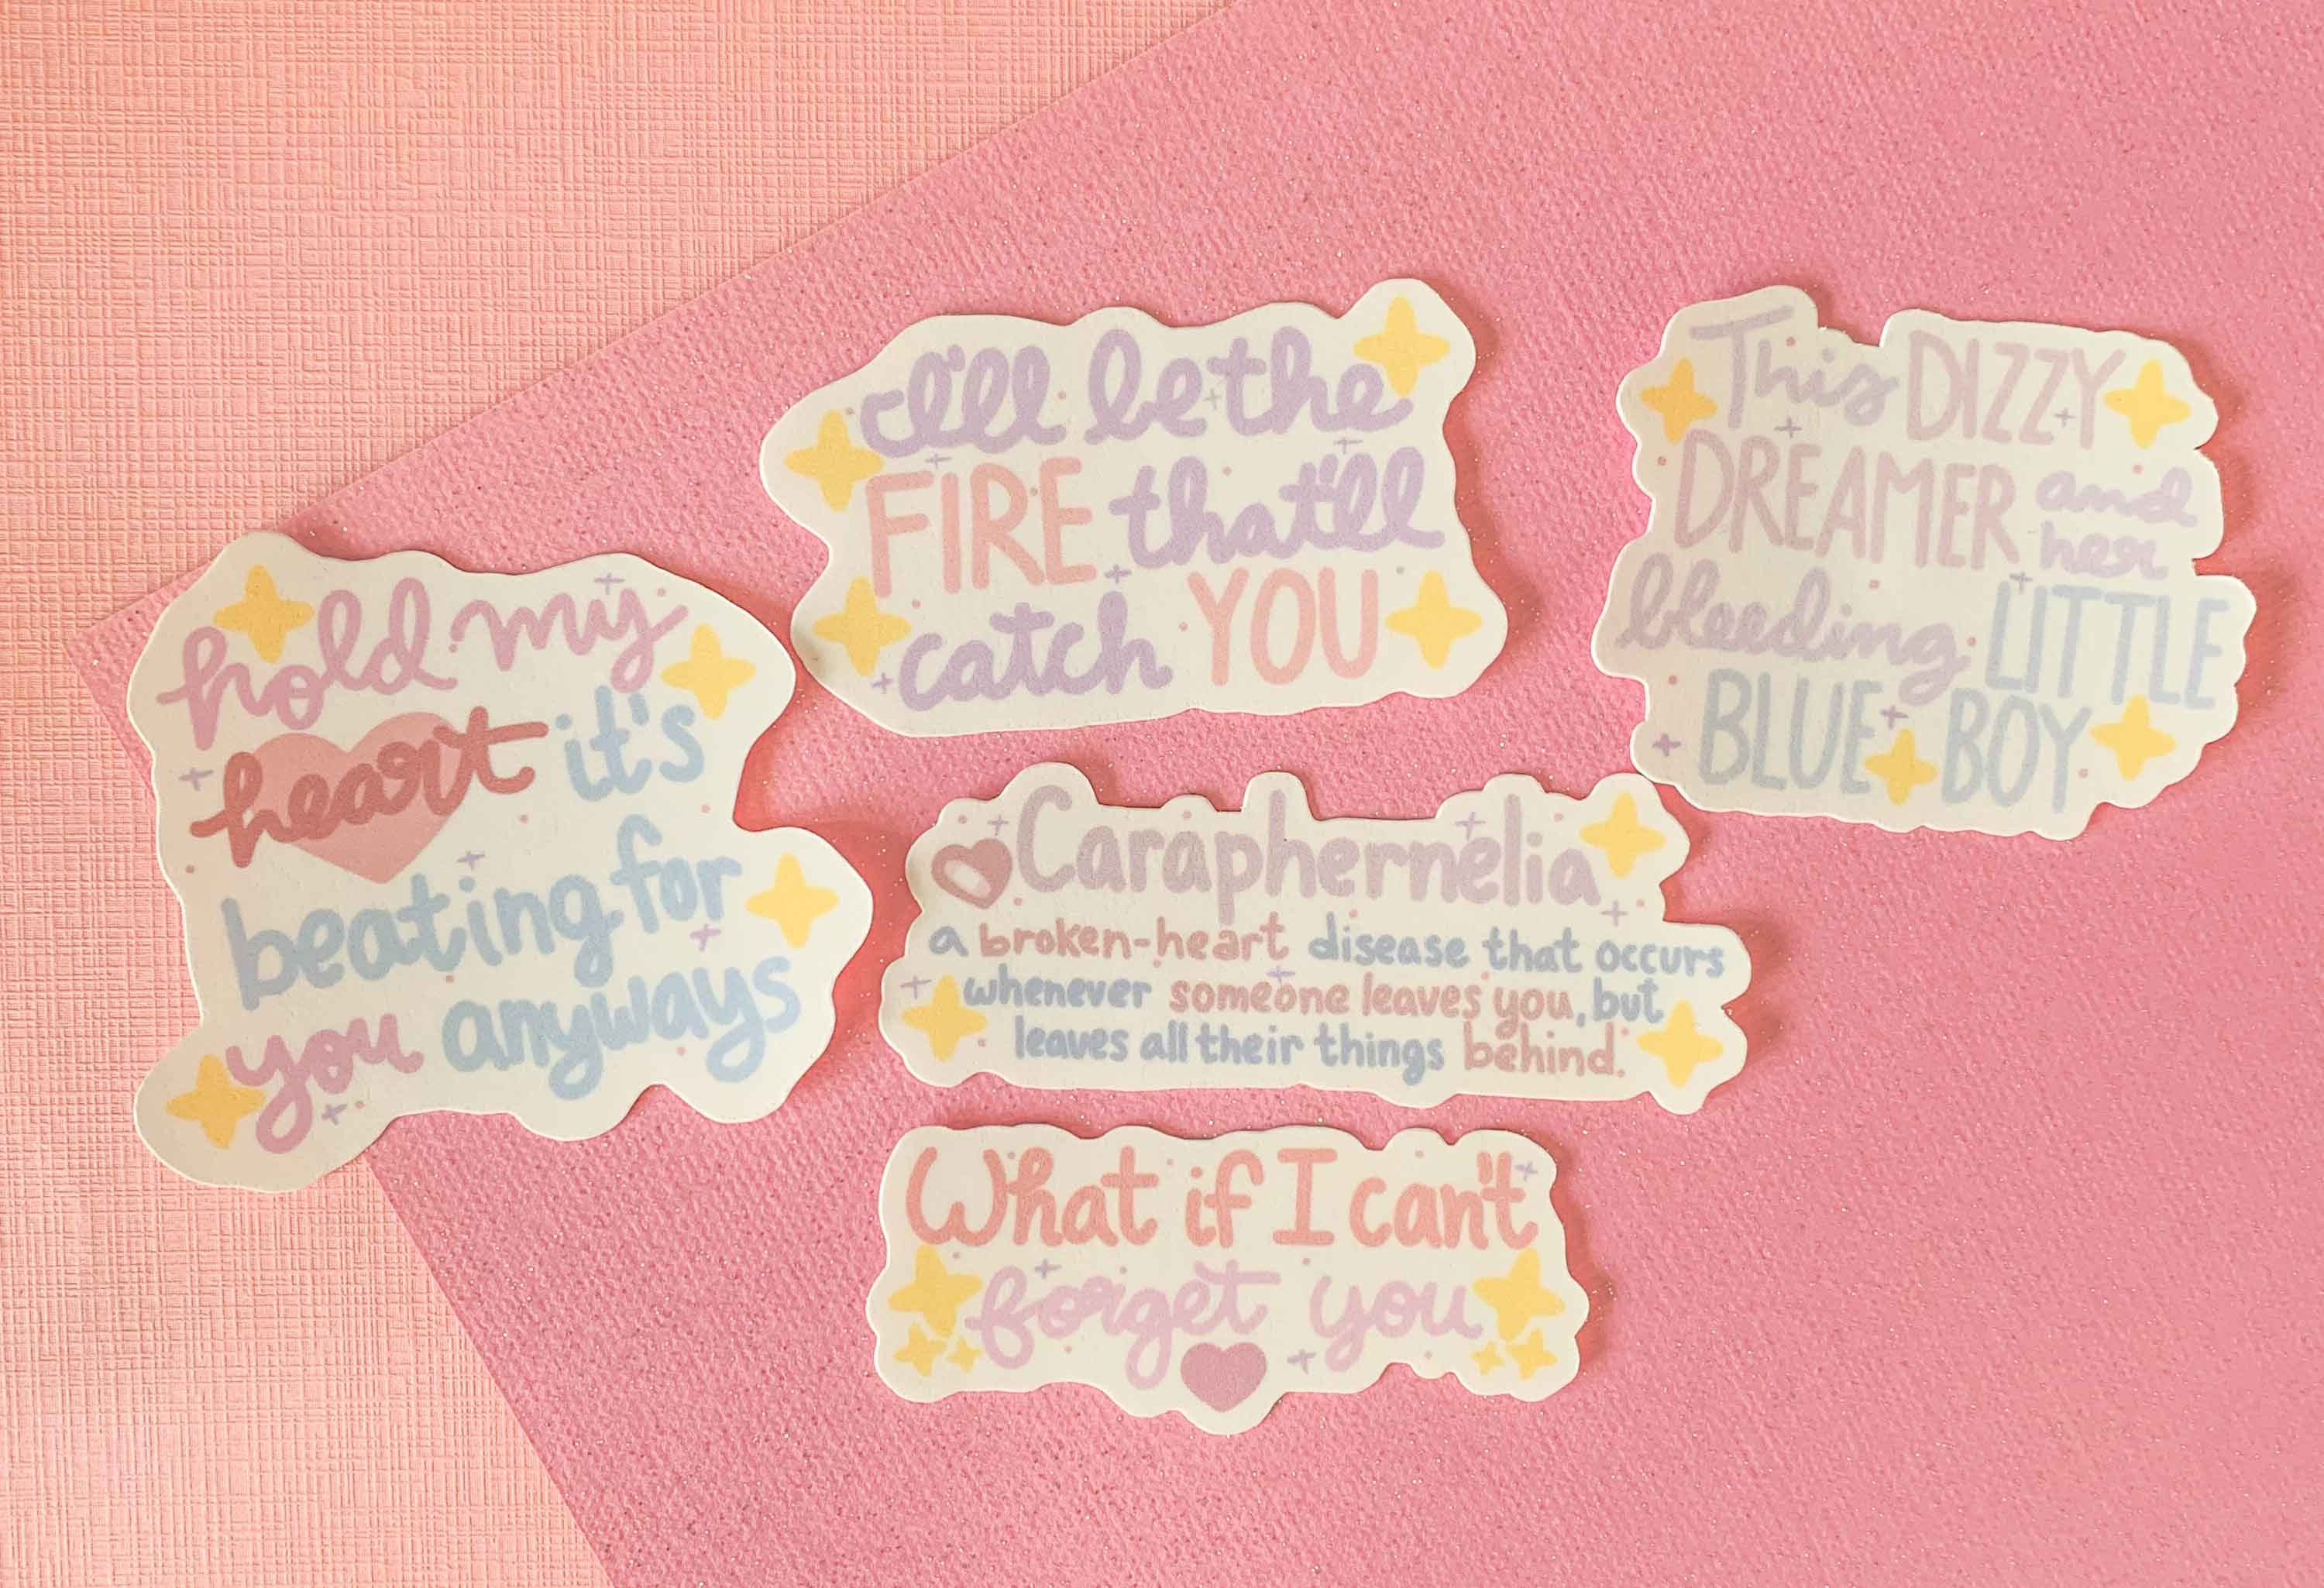 hold my
heart it's
beating for
you anyways
I'll be the
FIRE that'll
catch YOU
This DIZZY
DREAMER and
her
bleeding LITTLE
BLUE BOY
Caraphernelia
a broken-heart disease that occurs
whenever someone leaves you, but
leaves all their things behind.
What if I can't
forget you